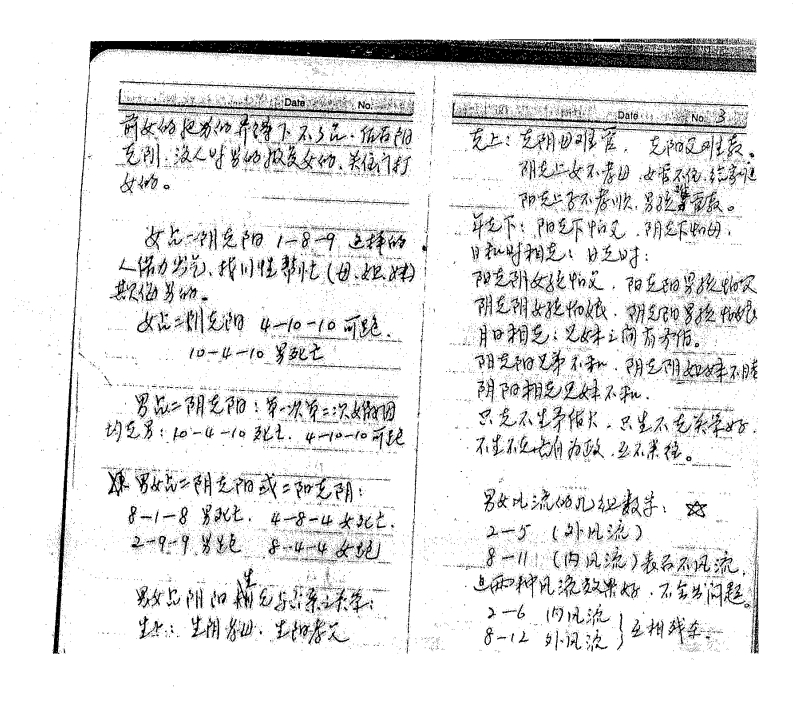 Date No.
前女的把男的弄得下不了台. 伍右阳
克阴. 没人时男的报复女的. 关住门打
女的。
女占二阴克阳 1-8-9 这样的
人借力发艺、找门性帮忙(母、姐、妹)
欺侮男的。
女占二阴克阳 4-10-10 可跑.
10-4-10 男死亡
男占二阴克阳:第一次第二次婚姻因
均克男:10-4-10 死亡. 4-10-10 可跑
男女占二阴克阳或二阳克阴:
8-1-8 男死亡. 4-8-4 女死亡.
2-9-9 男跑 8-4-4 女跑
男女占阴阳相生克与六亲之关系:
生上:生阴孝母. 生阳孝父
Date No. 3
克上:克阴母难管. 克阳父难教.
阴克上女不孝母. 女管不住.
阳克上子不孝顺. 男孩难管教。
年克下:阳克下怕父. 阴克下怕母.
日和时相克:日克时:
阳克阴女孩怕父. 阳克阳男孩怕父
阴克阴女孩怕娘. 阴克阳男孩怕娘
月日相克:兄妹之间有矛盾。
阴克阳兄弟不和. 阴克阴姐妹不睦
阴阳相克兄妹不和.
只克不生矛盾大. 只生不克关系好.
不生不克各自为政. 互不来往。
男女风流的几组数字: ☆
2-5 (外风流)
8-11 (内风流) 表面不风流.
这两种风流效果好. 不会出问题。
2-6 内风流
8-12 外风流 } 互相残杀.